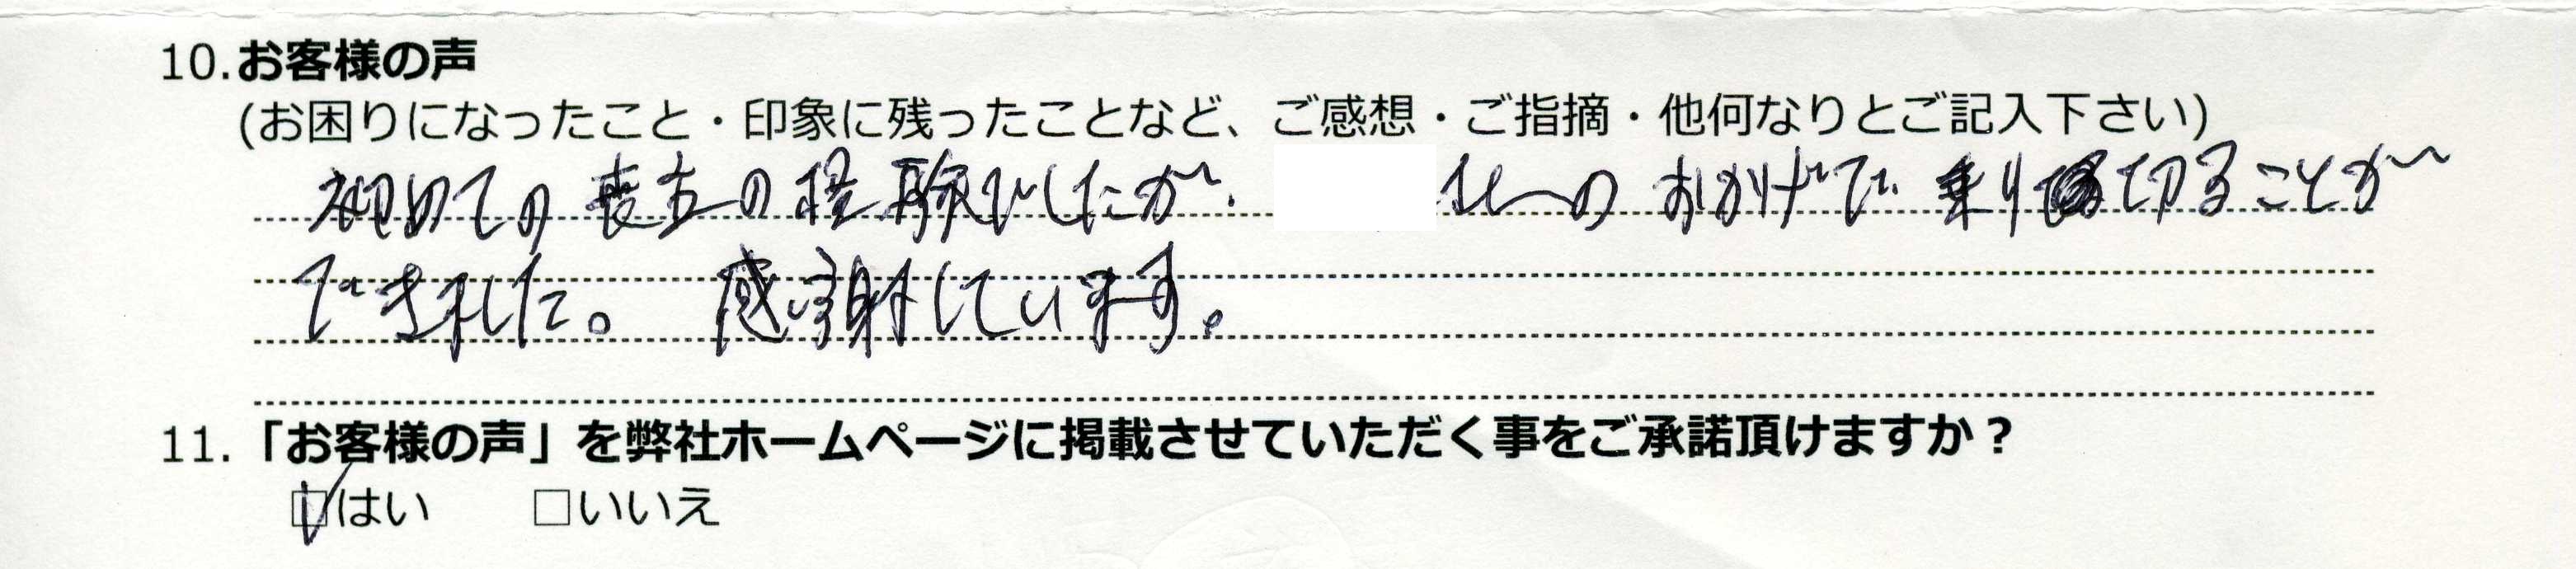 10.お客様の声
(お困りになったこと・印象に残ったことなど、ご感想・ご指摘・他何なりとご記入下さい)
初めての喪主の経験でしたが、 さんのおかげで乗り切ることが
できました。 感謝しています。
11.「お客様の声」を弊社ホームページに掲載させていただく事をご承諾頂けますか？
☑はい □いいえ